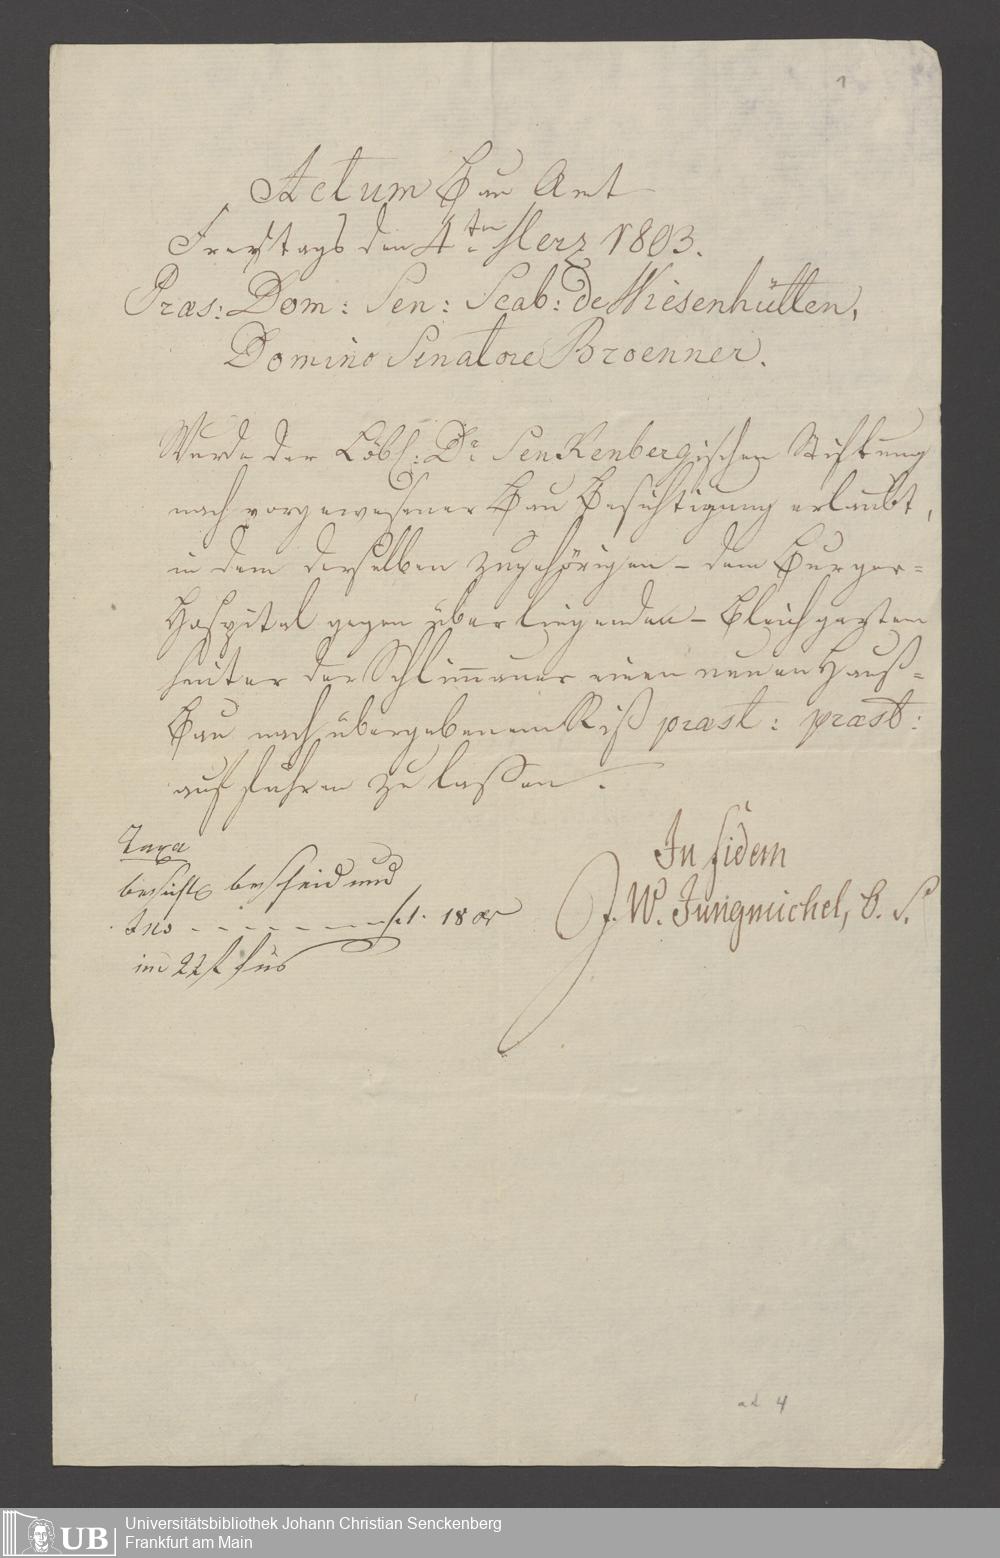 1
Actum Bau Amt
Freytags den 4ten Merz 1803.
Praes: Dom: Sen: Scab: de Wiesenhütten,
Domino Senatore Broenner.
Wurde der Löbl: Dr. Senkenbergischen Stiftung
nach vorgewesener Bau Besichtigung erlaubt,
in dem derselben zugehörigen - dem Burger=
Hospital gegen über liegenden - Bleichgarten
hinter der Schlimauer einen neuen Hauß=
Bau nach übergebenem Riß praest: praest:
aufführen zu lassen.
Taxa
besicht bescheid und
1. 18
In fidem
J. W. Jungmichel, B. S.
ad 4
UB
Universitätsbibliothek Johann Christian Senckenberg
Frankfurt am Main